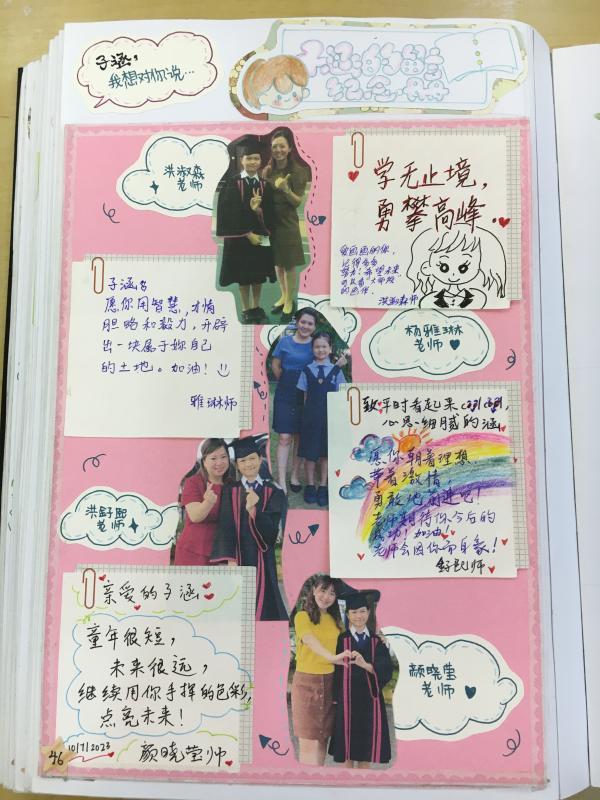 子涵,
我想对你说...
子涵的留言
纪念册
洪淑森
老师
学无止境,
勇攀高峰.
爱画画的你,
记得多多
努力!希望未来
可以看
的画作.
洪淑森师
子涵:
愿你用智慧,才情
胆略和毅力,开辟
出一块属于妳自己
的土地。加油!
雅琳师
杨雅琳
老师
致平时看起来
心思细腻的涵
愿你朝着理想,
带着激情,
勇敢地前进吧!
老师期待你今后的
成功!加油!
老师会因你而自豪!
舒熙师
洪舒熙
老师
亲爱的子涵
童年很短,
未来很远,
继续用你手撑的色彩,
点亮未来!
10/7/2023
颜晓莹师
颜晓莹
老师
46